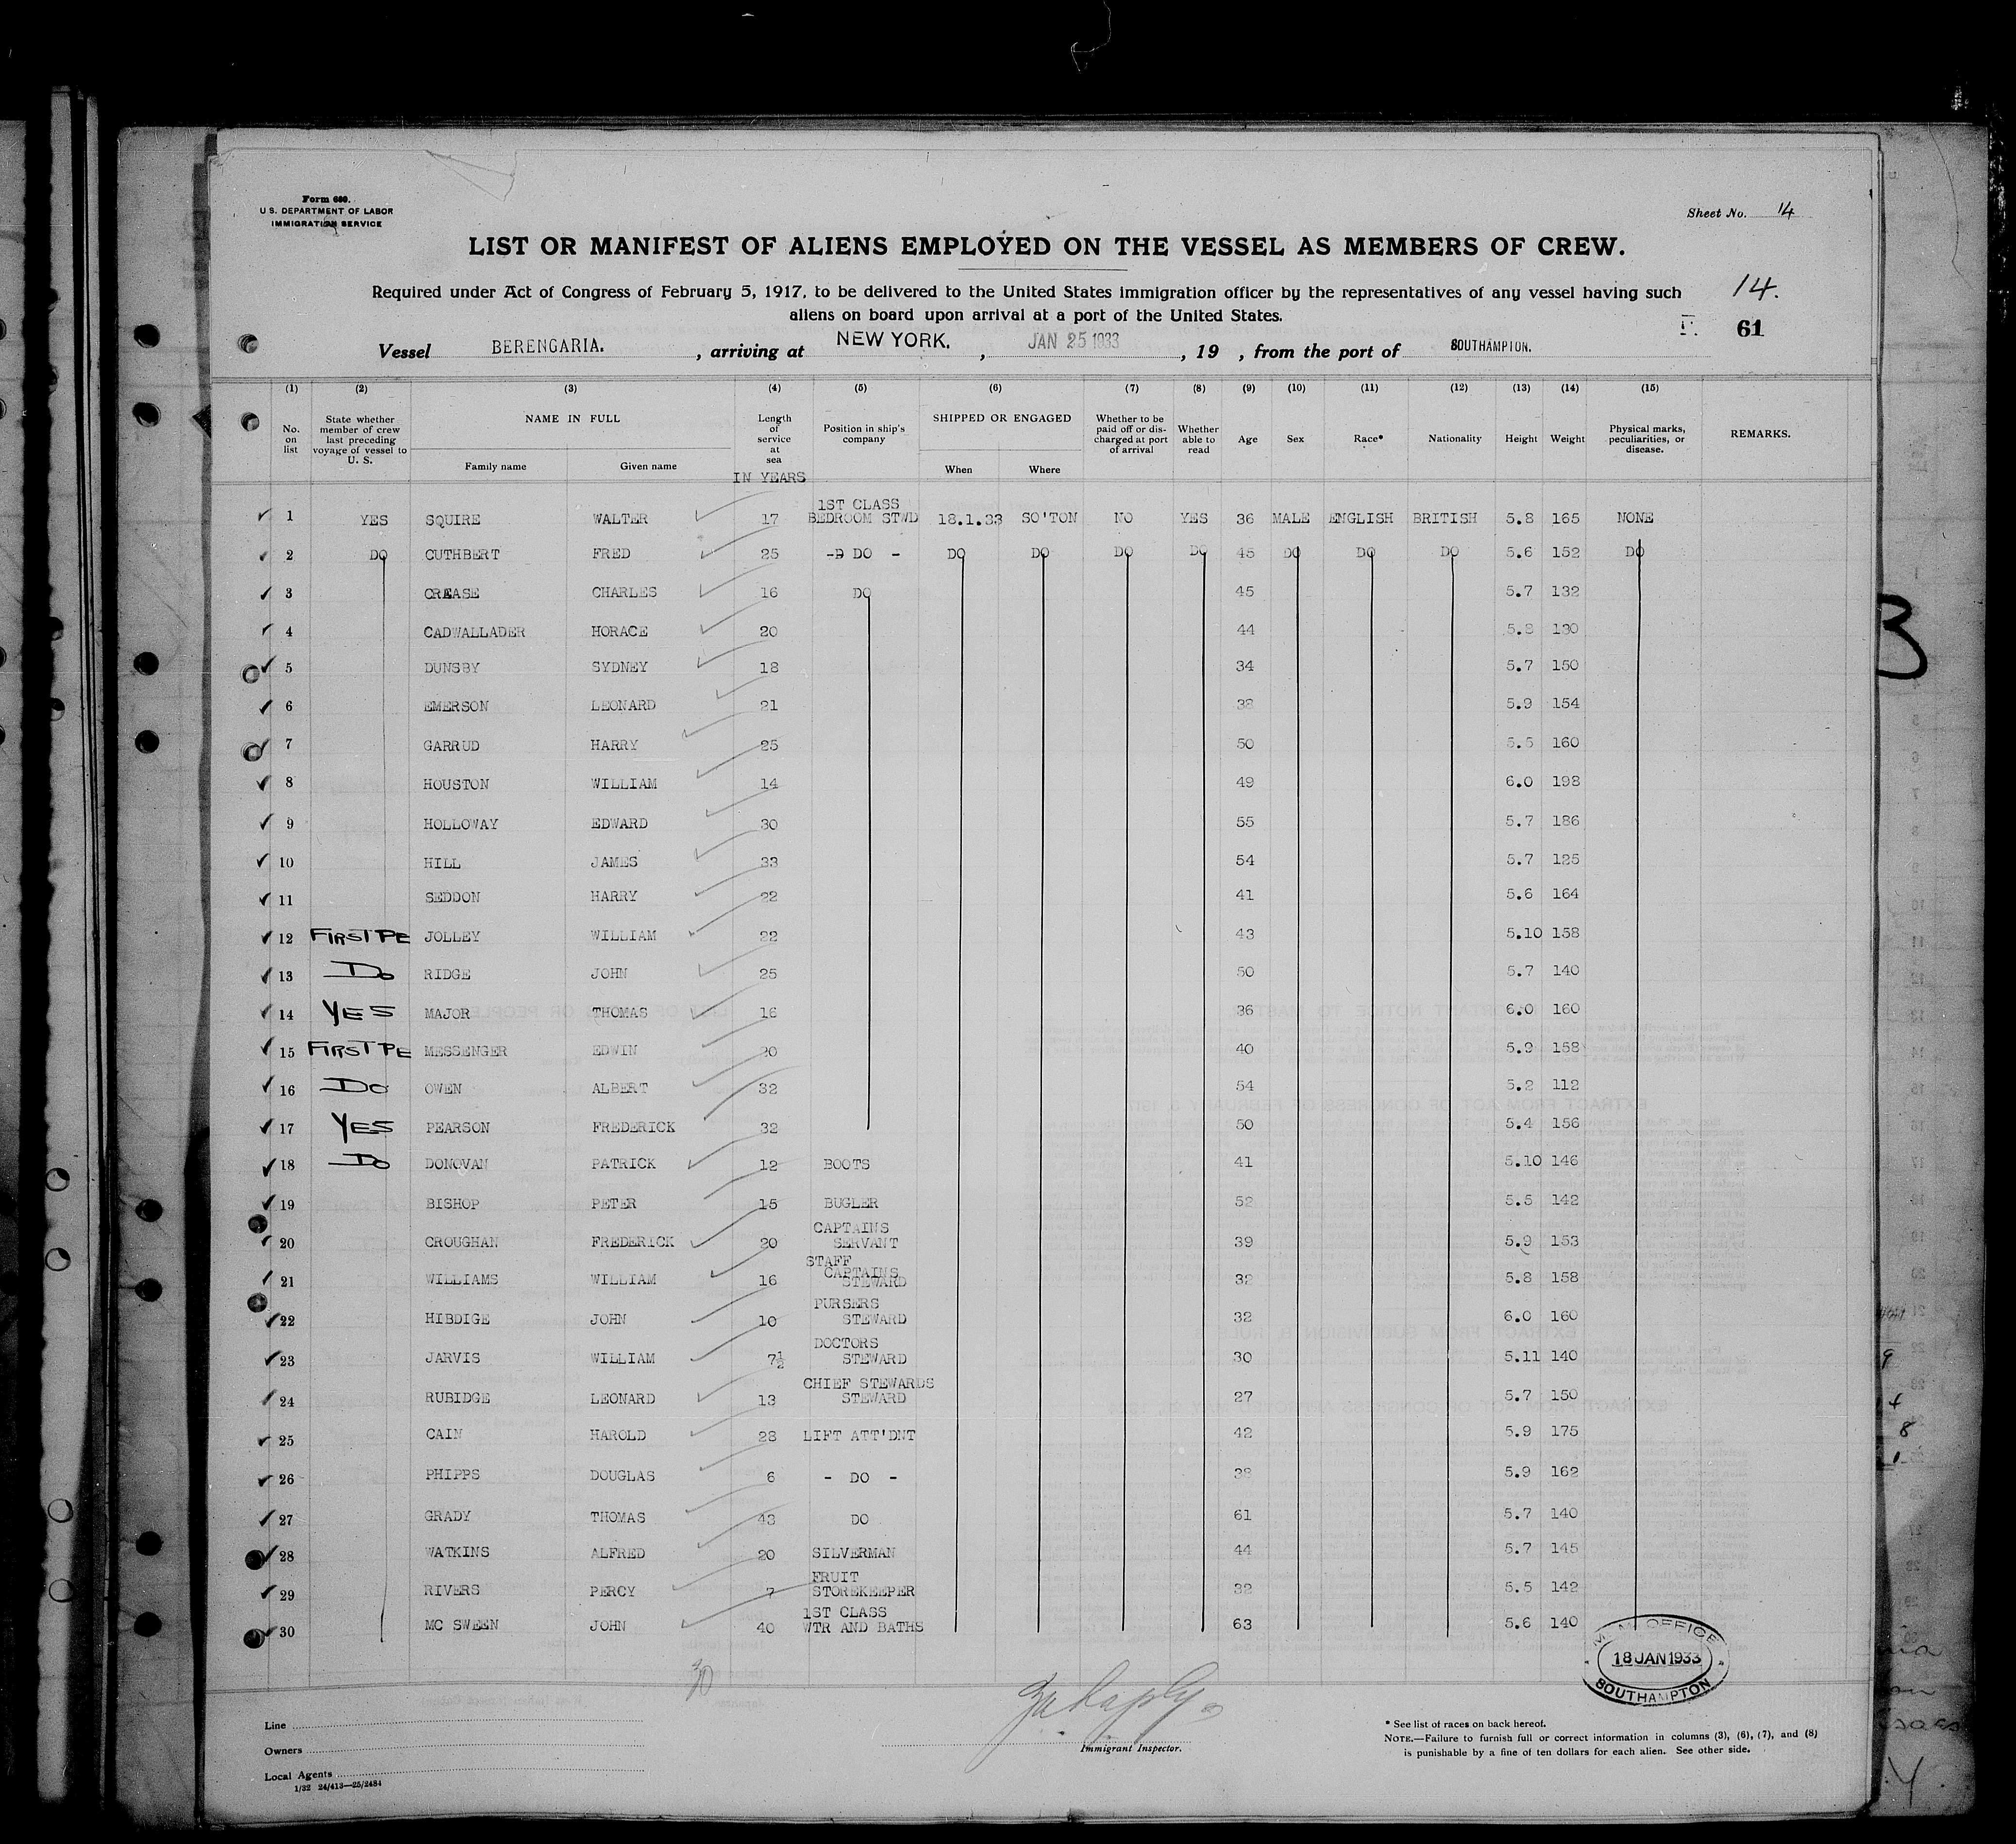 Form 680.
U. S. DEPARTMENT OF LABOR
IMMIGRATION SERVICE
Sheet No. 14
LIST OR MANIFEST OF ALIENS EMPLOYED ON THE VESSEL AS MEMBERS OF CREW.
Required under Act of Congress of February 5, 1917, to be delivered to the United States immigration officer by the representatives of any vessel having such
aliens on board upon arrival at a port of the United States.
14.
61
Vessel BERENGARIA. , arriving at NEW YORK. , JAN 25 1933 , 19 , from the port of SOUTHAMPTON.
(1) (2) (3) (4) (5) (6) (7) (8) (9) (10) (11) (12) (13) (14) (15)
No. on list State whether member of crew last preceding voyage of vessel to U. S. NAME IN FULL Family name Given name Length of service at sea IN YEARS Position in ship's company SHIPPED OR ENGAGED When Where Whether to be paid off or discharged at port of arrival Whether able to read Age Sex Race* Nationality Height Weight Physical marks, peculiarities, or disease. REMARKS.
1 YES SQUIRE WALTER 17 1ST CLASS BEDROOM STWD 18.1.33 SO'TON NO YES 36 MALE ENGLISH BRITISH 5.8 165 NONE
2 DO CUTHBERT FRED 25 - DO - DO DO DO DO 45 DO DO DO 5.6 152 DO
3 CREASE CHARLES 16 DO 45 5.7 132
4 CADWALLADER HORACE 20 44 5.8 130
5 DUNSBY SYDNEY 18 34 5.7 150
6 EMERSON LEONARD 21 38 5.9 154
7 GARRUD HARRY 25 50 5.5 160
8 HOUSTON WILLIAM 14 49 6.0 198
9 HOLLOWAY EDWARD 30 55 5.7 186
10 HILL JAMES 33 54 5.7 125
11 SEDDON HARRY 22 41 5.6 164
12 FIRST PE JOLLEY WILLIAM 22 43 5.10 158
13 DO RIDGE JOHN 25 50 5.7 140
14 YES MAJOR THOMAS 16 36 6.0 160
15 FIRST PE MESSENGER EDWIN 20 40 5.9 158
16 DO OWEN ALBERT 32 54 5.2 112
17 YES PEARSON FREDERICK 32 50 5.4 156
18 DO DONOVAN PATRICK 12 BOOTS 41 5.10 146
19 BISHOP PETER 15 BUGLER 52 5.5 142
20 CROUGHAN FREDERICK 20 CAPTAINS SERVANT 39 5.9 153
21 WILLIAMS WILLIAM 16 STAFF CAPTAINS STEWARD 32 5.8 158
22 HIBDIGE JOHN 10 PURSERS STEWARD 32 6.0 160
23 JARVIS WILLIAM 7½ DOCTORS STEWARD 30 5.11 140
24 RUBIDGE LEONARD 13 CHIEF STEWARDS STEWARD 27 5.7 150
25 CAIN HAROLD 28 LIFT ATT'DNT 42 5.9 175
26 PHIPPS DOUGLAS 6 - DO - 38 5.9 162
27 GRADY THOMAS 43 DO 61 5.7 140
28 WATKINS ALFRED 20 SILVERMAN 44 5.7 145
29 RIVERS PERCY 7 FRUIT STOREKEEPER 32 5.5 142
30 MC SWEEN JOHN 40 1ST CLASS WTR AND BATHS 63 5.6 140
30
OFFICE
18 JAN 1933
SOUTHAMPTON
Line
Owners
Local Agents
1/32 24/413—25/2484
Immigrant Inspector.
* See list of races on back hereof.
NOTE.—Failure to furnish full or correct information in columns (3), (6), (7), and (8)
is punishable by a fine of ten dollars for each alien. See other side.